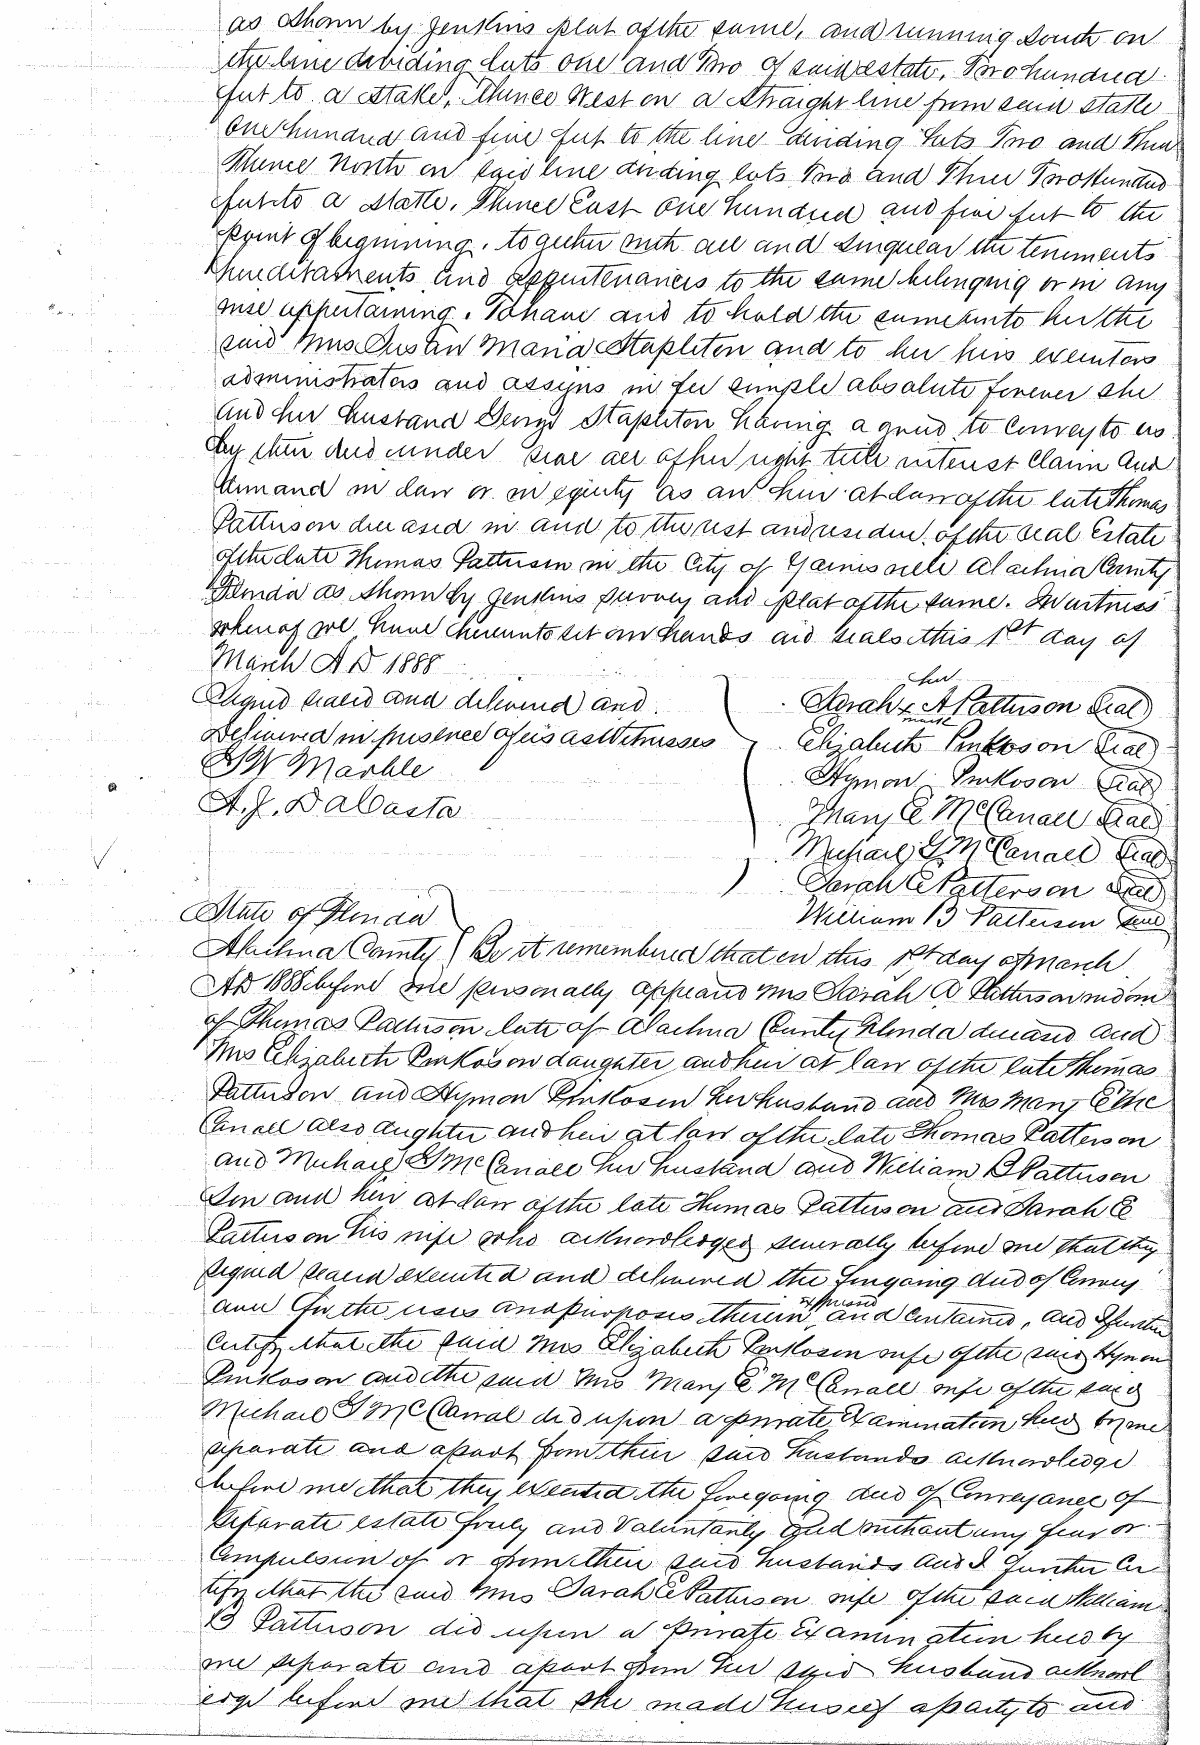 as shown by Jenkins plat of the same, and running South on
the line dividing lots one and Two of said estate, Two hundred
feet to a stake, Thence West on a straight line from said stake
One hundred and five feet to the line dividing Lots Two and Three
Thence North on said line dividing lots Two and Three Two Hundred
feet to a stake, Thence East One hundred and five feet to the
point of beginning, together with all and singular the tenements
hereditaments and appurtenances to the same belonging or in any
wise appertaining. To have and to hold the same unto her the
said Mrs Susan Maria Stapleton and to her heirs executors
administrators and assigns in fee simple absolute forever she
and her husband George Stapleton having agreed to Convey to us
by their deed under seal all of her right title interest Claim and
demand in law or in equity as an heir at law of the late Thomas
Patterson deceased in and to the rest and residue of the real Estate
of the late Thomas Patterson in the City of Gainesville Alachua County
Florida as shown by Jenkins survey and plat of the same. In witness
whereof we have hereunto set our hands and seals this 1st day of
March A D 1888
Signed sealed and delivered and
Delivered in presence of us as Witnesses
S W Marble
A. J. DaCosta
her
Sarah x A Patterson Seal
mark
Elizabeth Pinkoson Seal
Hymon Pinkoson Seal
Mary E McCanall Seal
Michael G McCanall Seal
Sarah E Patterson Seal
William B Patterson Seal
State of Florida
Alachua County } Be it remembered that on this 1st day of March
AD 1888 before me personally appeared Mrs Sarah A Patterson widow
of Thomas Patterson late of Alachua County Florida deceased and
Mrs Elizabeth Pinkoson daughter and heir at law of the late Thomas
Patterson and Hymon Pinkoson her husband and Mrs Mary E Mc
Canall also daughter and heir at law of the late Thomas Patterson
and Michael G McCanall her husband and William B Patterson
Son and heir at law of the late Thomas Patterson and Sarah E
Patterson his wife who acknowledged severally before me that they
signed sealed executed and delivered the foregoing deed of Convey
ance for the uses and purposes therein expressed and contained, and I further
Certify that the said Mrs Elizabeth Pinkoson wife of the said Hymon
Pinkoson and the said Mrs Mary E McCanall wife of the said
Michael G McCanal did upon a private Examination held by me
separate and apart from their said husbands acknowledge
before me that they executed the foregoing deed of Conveyance of
Separate estate freely and Voluntarily and without any fear or
Compulsion of or from their said husbands and I further Cer
tify that the said Mrs Sarah E Patterson wife of the said William
B Patterson did upon a private Examination held by
me separate and apart from her said husband acknowl
edge before me that she made herself a party to and